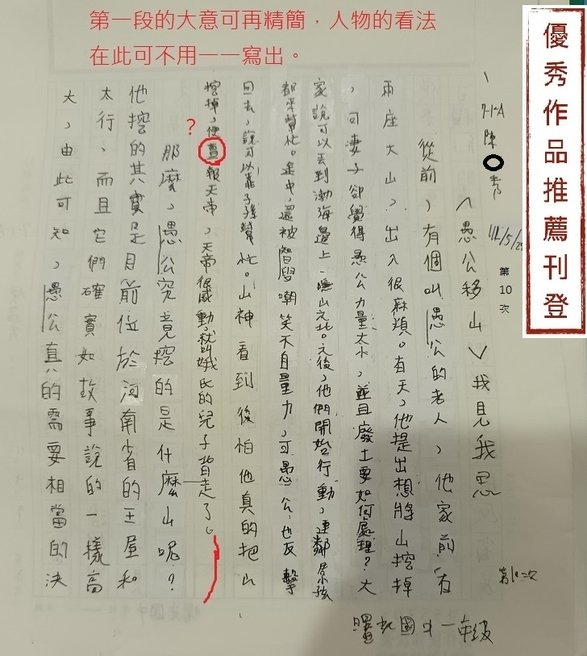 第一段的大意可再精簡，人物的看法
在此可不用一一寫出。
優秀作品推薦刊登
7-1-A 陳
第10次
〈愚公移山〉我見我思
從前，有個叫愚公的老人，他家前有
兩座大山，出入很麻煩。有天，他提出想將山挖掉
，可妻子卻覺得愚公力量太小，並且廢土要如何處理？大
家說可以丟到渤海邊上、隱土之北。之後，他們開始行動，連鄰居小孩
都來幫忙。途中，還被智叟嘲笑不自量力，可愚公也反擊
回去，說可以靠子孫幫忙。山神看到後怕他真的把山
挖掉，便 報天帝，天帝很感動，就叫娥氏的兒子背走了。
？
那麼，愚公究竟挖的是什麼山呢？
他挖的其實是目前位於河南省的王屋和
太行，而且它們確實如故事說的一樣高
大，由此可知，愚公真的需要相當的決
國中一年級